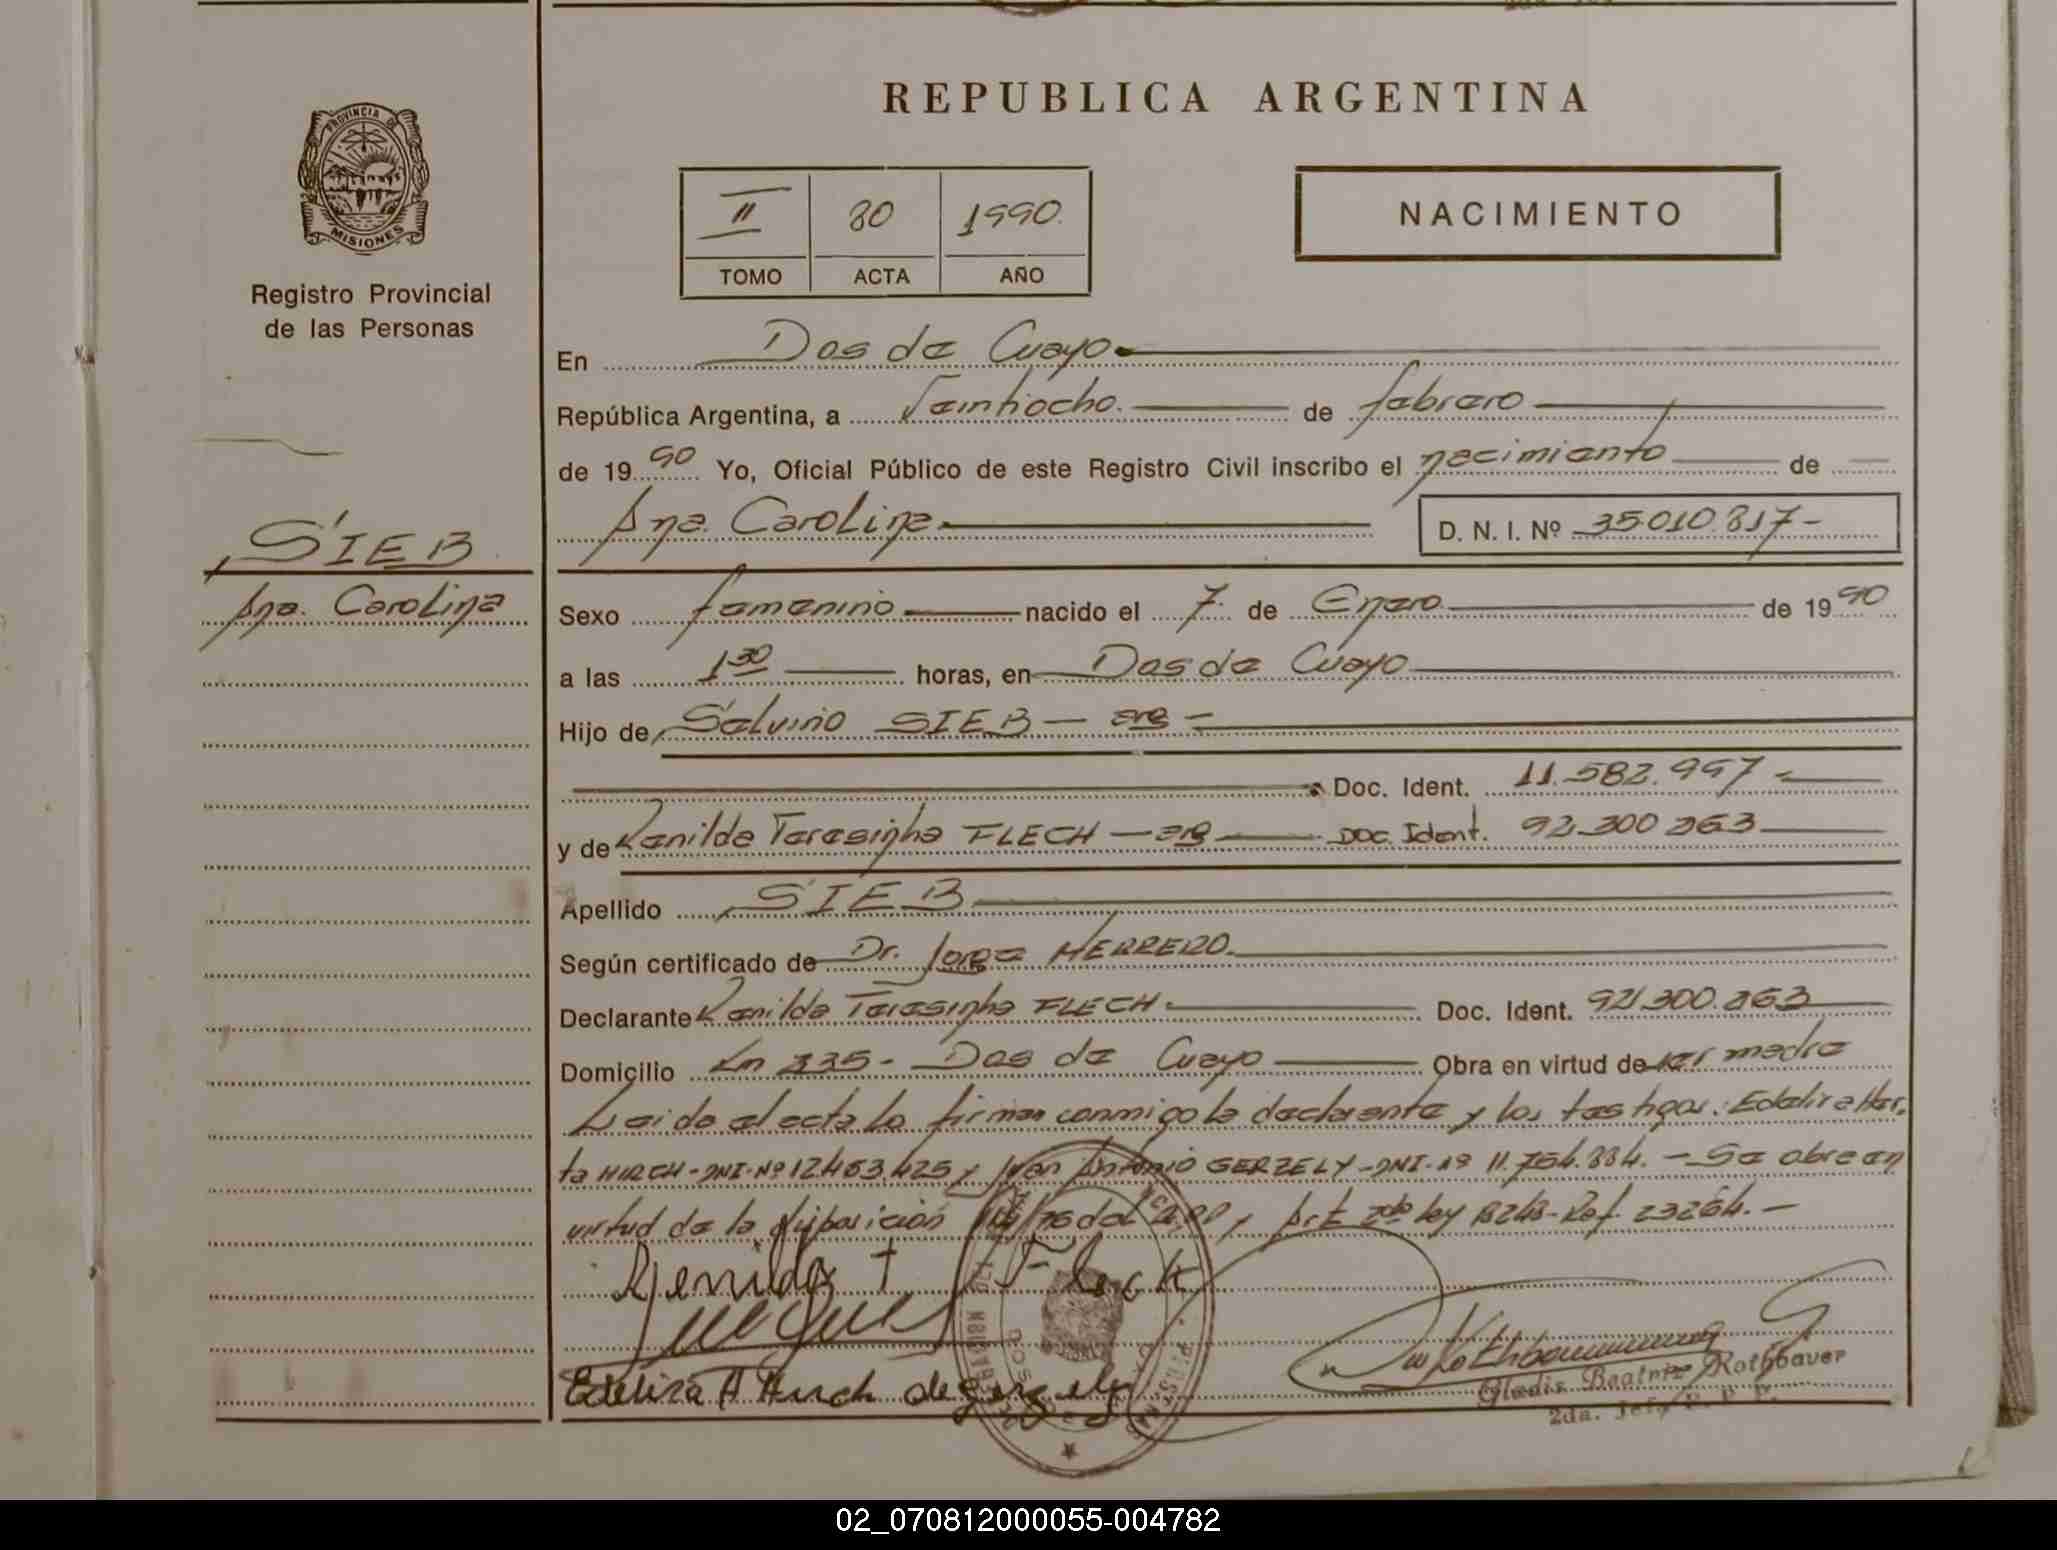 REPUBLICA ARGENTINA
PROVINCIA DE
MISIONES
Registro Provincial
de las Personas
II 80 1990.
TOMO ACTA AÑO
NACIMIENTO
En Dos de Mayo
República Argentina, a Veintiocho. de febrero
de 1990 Yo, Oficial Público de este Registro Civil inscribo el nacimiento de
Ana Carolina D. N. I. Nº 35.010.817-
SIEB
Ana Carolina
Sexo femenino nacido el 7 de Enero de 1990
a las 1 30 horas, en Dos de Mayo
Hijo de Salvino SIEB - arg -
Doc. Ident. 11.582.997-
y de Renilda Teresinha FLECH - arg Doc. Ident. 92.300.363
Apellido SIEB
Según certificado de Dr. Jorge HERRERO.
Declarante Renilda Teresinha FLECH Doc. Ident. 92.300.363
Domicilio Ln 335- Dos de Mayo Obra en virtud de ser madre
Leida el acta la firman conmigo la declarante y los testigos: Edelira Her
ta HIRCH-DNI-Nº 12.463.425 y Juan Antonio GERZELY-DNI-Nº 11.754.884.- Se obre en
virtud de la disposición del y Art 2do ley 18248-Ref. 23264.-
Renilda T Flech
Edelira H Hirch de Gerzely
Gladis Beatriz Rothbauer
2da. Jefe
02_070812000055-004782